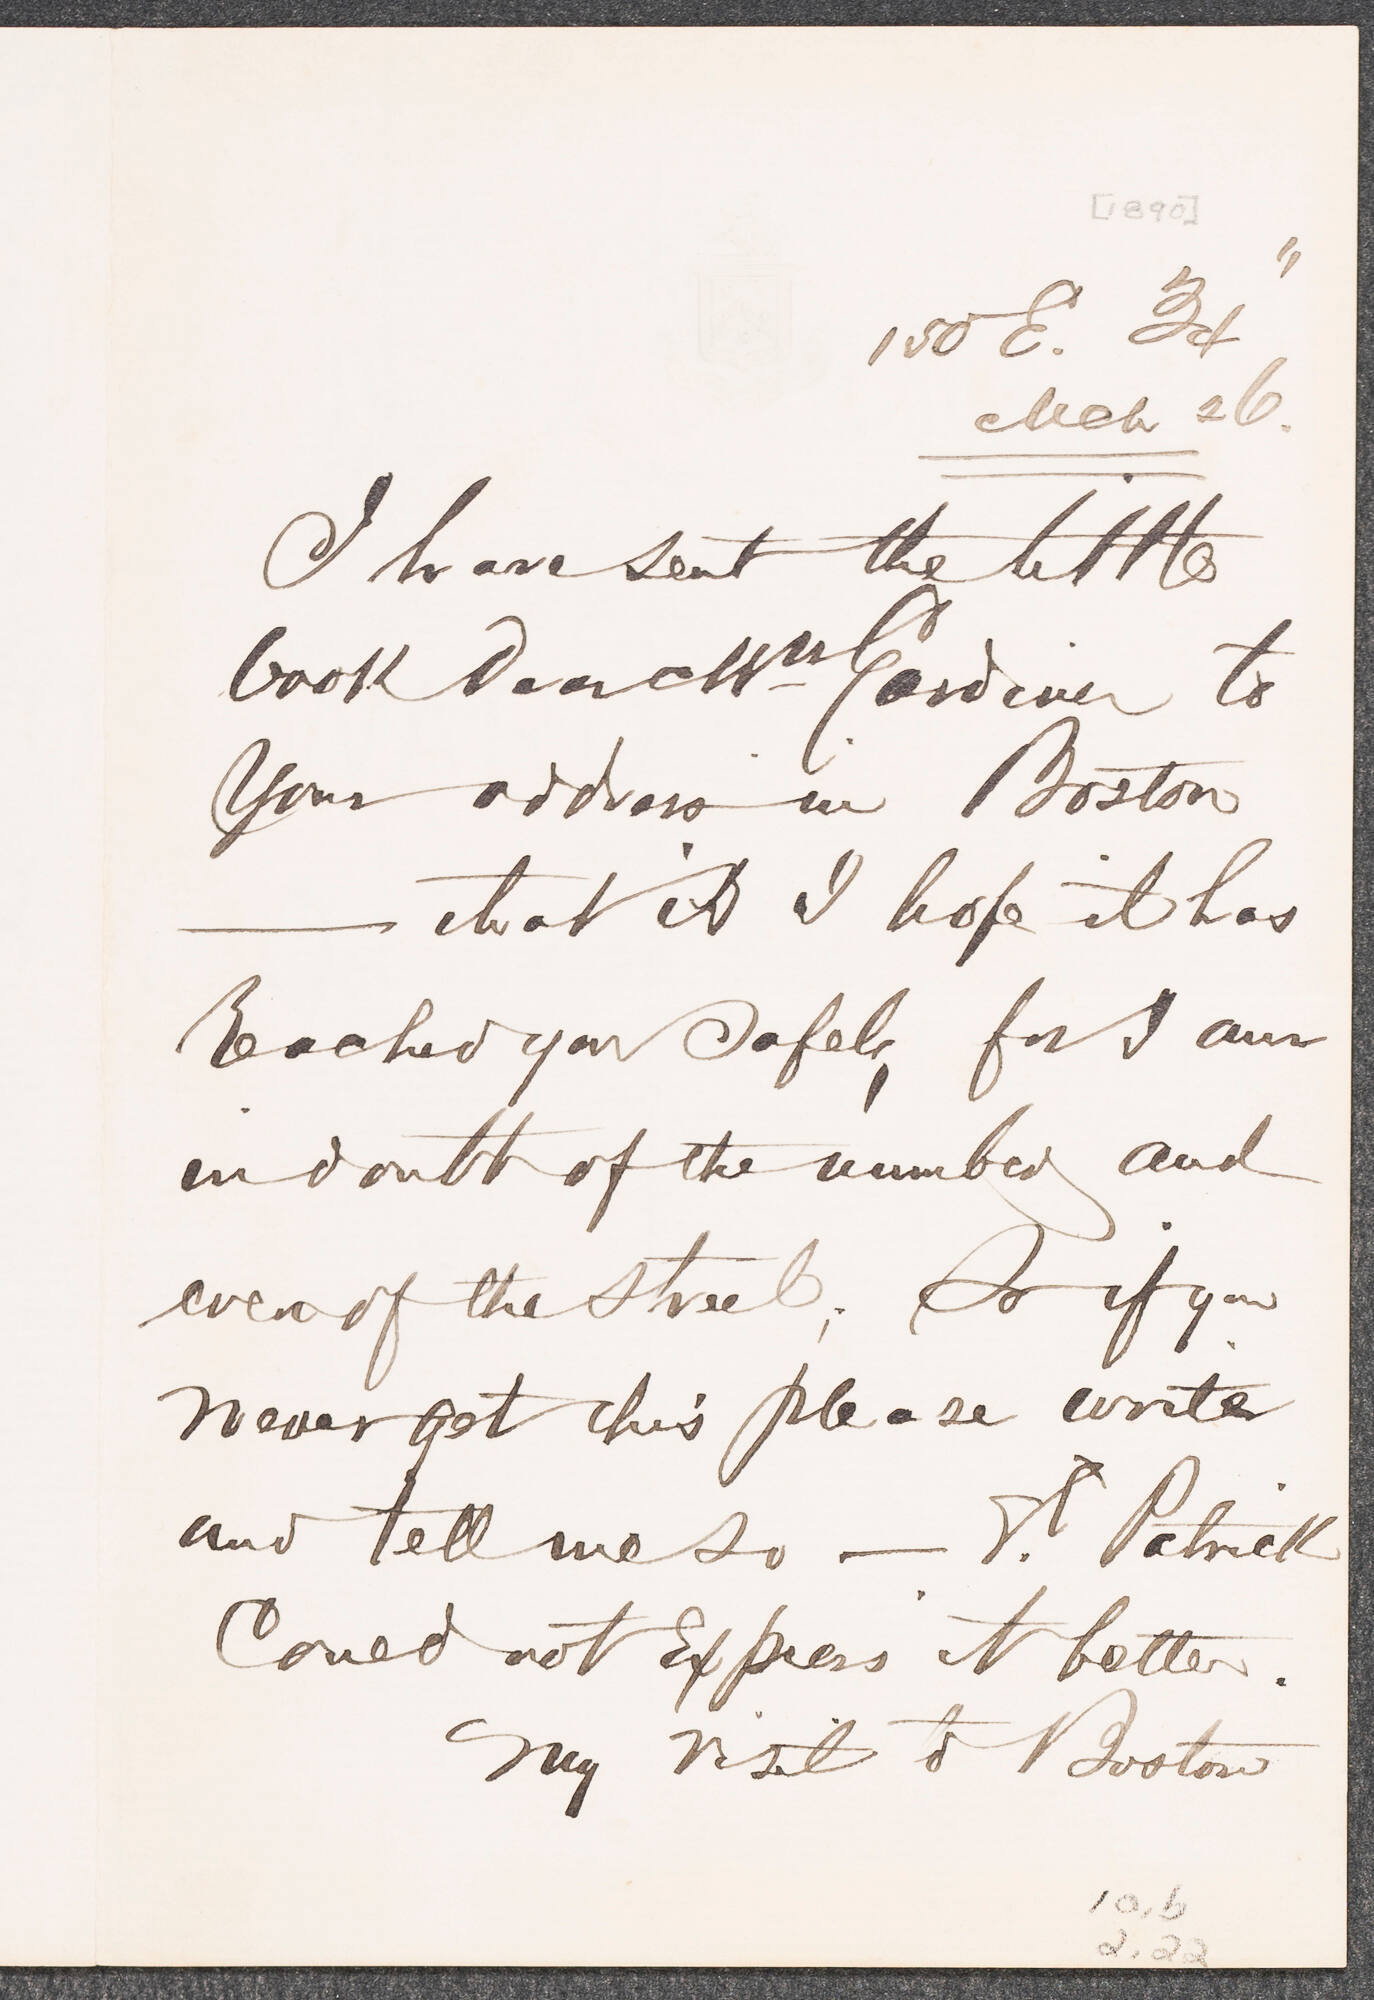 [1890]
150 E. 34"
Mch 26.
I have sent the little
book Dear Mrs Gardiner to
Your address in Boston
— that is I hope it has
Reached you Safely, for I am
in doubt of the number and
even of the street; So if you
never get this please write
and tell me so — St. Patrick
Could not Express it better.
My visit to Boston
10,6
2.22